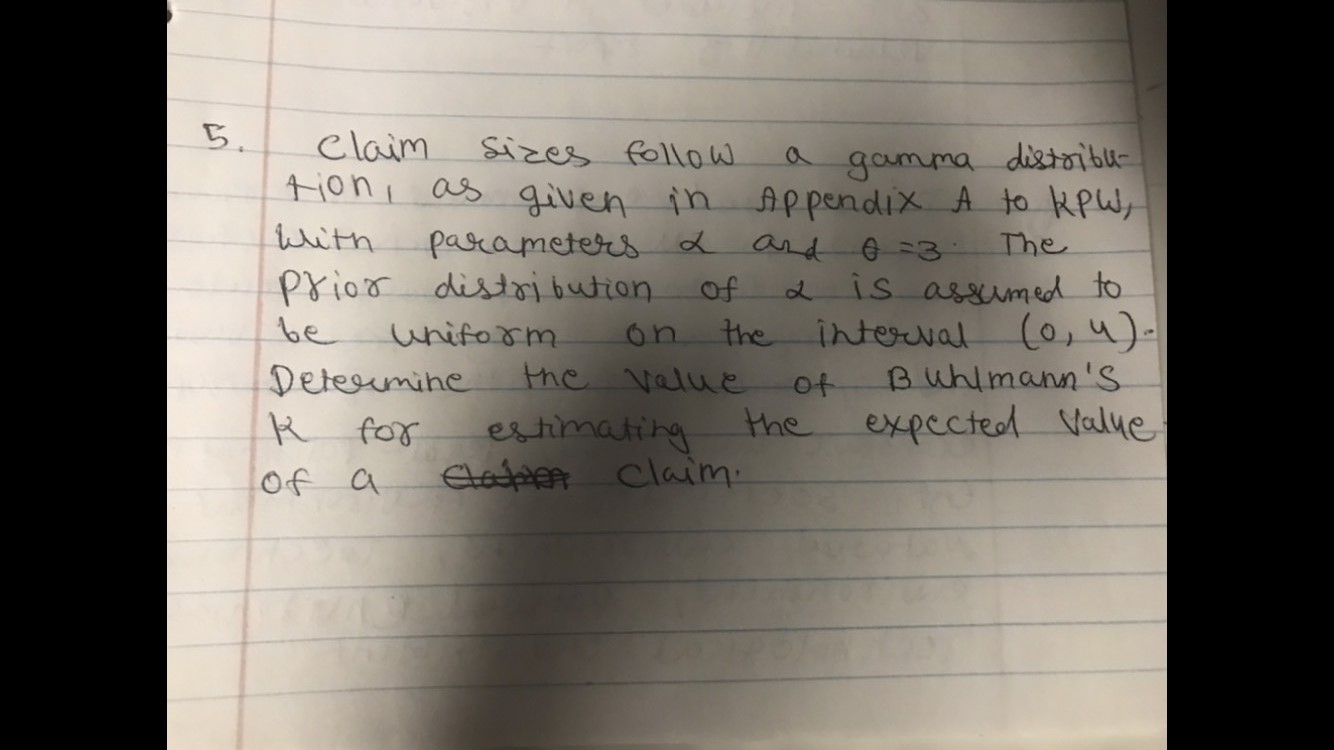 5. Claim sizes follow a gamma distribu-
tion, as given in Appendix A to KPW,
With parameters α and θ = 3. The
prior distribution of α is assumed to
be uniform on the interval (0, 4).
Determine the value of Buhlmann's
K for estimating the expected value
of a claim.